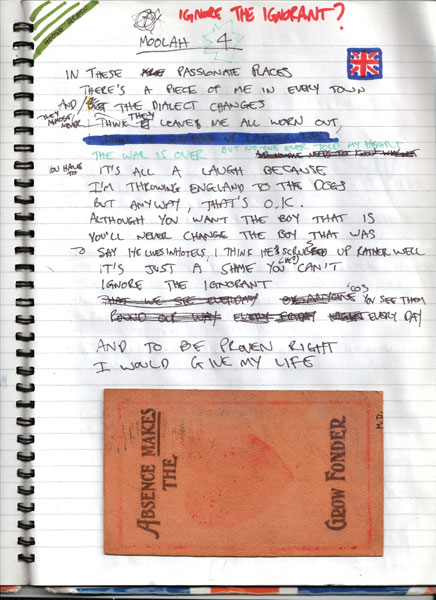 IGNORE THE IGNORANT?
MOOLAH 4
IN THESE PASSIONATE PLACES
THERE'S A PIECE OF ME IN EVERY TOWN
AND THE DIALECT CHANGES
THINK THEY LEAVES ME ALL WORN OUT,
THE WAR IS OVER BUT NO-ONE EVER TOLD MY HEART
YOU HAVE TO IT'S ALL A LAUGH BECAUSE
I'M THROWING ENGLAND TO THE DOGS
BUT ANYWAY, THAT'S O.K.
ALTHOUGH YOU WANT THE BOY THAT IS
YOU'LL NEVER CHANGE THE BOY THAT WAS
TO SAY HE LIVES IN HOTELS, I THINK HE SCRUBS UP RATHER WELL
IT'S JUST A SHAME YOU CAN'T
IGNORE THE IGNORANT
THAT WE SEE EVERYDAY OR ANYONE 'COS YOU SEE THEM
ROUND OUR WAY EVERY DAY
AND TO BE PROVEN RIGHT
I WOULD GIVE MY LIFE
ABSENCE MAKES
THE
GROW FONDER
M.D.